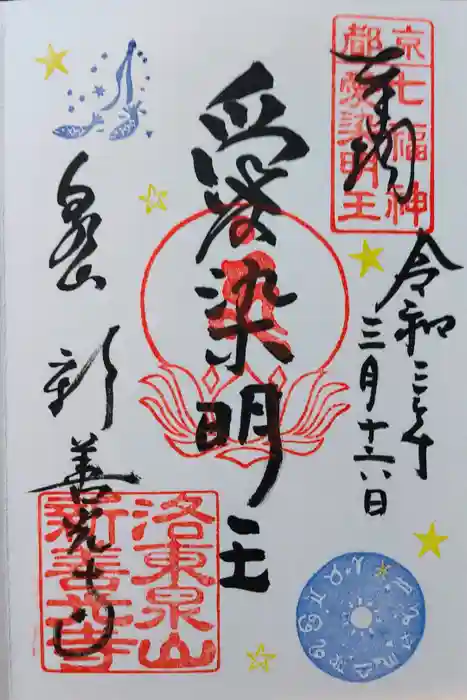 奉拝
京都
七福神
愛染明王
令和三年
三月十六日
愛染明王
泉山
新善光寺
洛東泉山
新善光寺